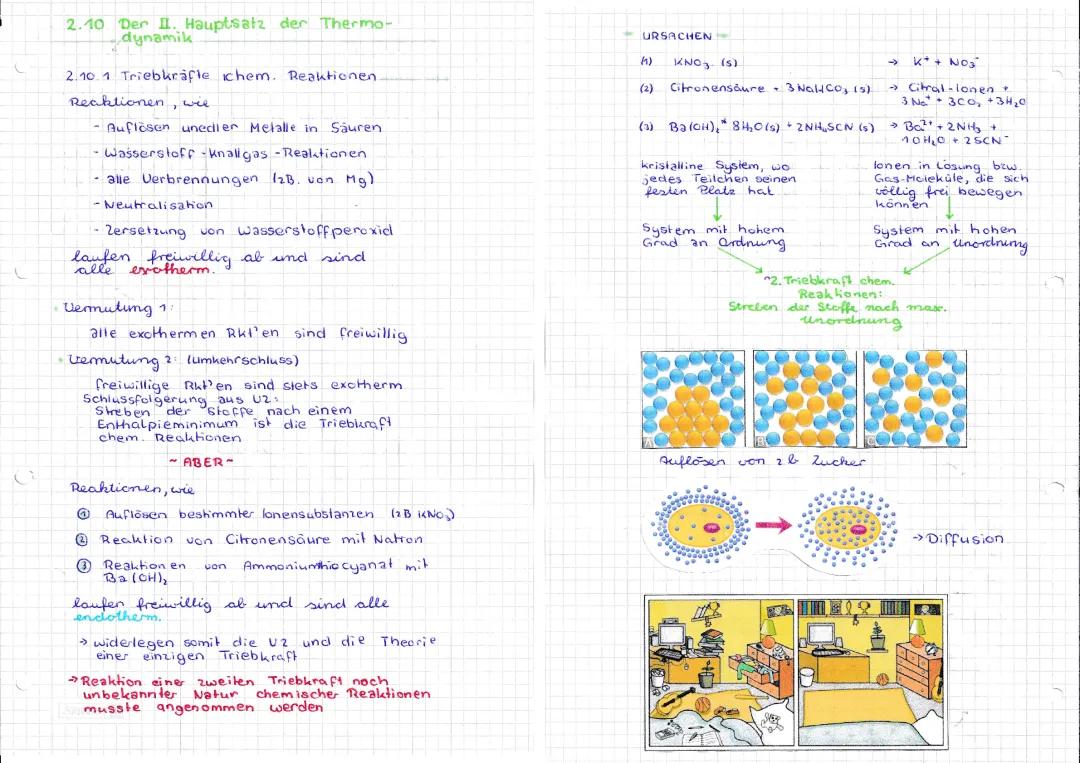 2.10 Der II. Hauptsatz der Thermo-
dynamik
2.10.1 Triebkräfte chem. Reaktionen
Reaktionen, wie
- Auflösen unedler Metalle in Säuren
- Wasserstoff-Knallgas-Reaktionen
- alle Verbrennungen (zB. von Mg)
- Neutralisation
- Zersetzung von Wasserstoffperoxid
laufen freiwillig ab und sind
alle exotherm.
• Vermutung 1:
alle exothermen Rkt'en sind freiwillig
• Vermutung 2: (Umkehrschluss)
freiwillige Rkt'en sind stets exotherm
Schlussfolgerung aus V2:
Streben der Stoffe nach einem
Enthalpieminimum ist die Triebkraft
chem. Reaktionen
~ ABER ~
Reaktionen, wie
① Auflösen bestimmter Ionensubstanzen (zB KNO₃)
② Reaktion von Citronensäure mit Natron
③ Reaktionen von Ammoniumthiocyanat mit
Ba(OH)₂
laufen freiwillig ab und sind alle
endotherm.
→ widerlegen somit die V2 und die Theorie
einer einzigen Triebkraft
→ Reaktion einer zweiten Triebkraft noch
unbekannter Natur chemischer Reaktionen
musste angenommen werden
URSACHEN
(1) KNO₃ (s) → K⁺ + NO₃⁻
(2) Citronensäure + 3 NaHCO₃ (s) → Citrat-Ionen +
3 Na⁺ + 3CO₂ + 3H₂O
(3) Ba(OH)₂ * 8H₂O(s) + 2NH₄SCN (s) → Ba²⁺ + 2NH₃ +
10H₂O + 2SCN⁻
kristalline System, wo
jedes Teilchen seinen
festen Platz hat
Ionen in Lösung bzw.
Gas-Moleküle, die sich
völlig frei bewegen
können
System mit hohem
Grad an Ordnung
System mit hohen
Grad an Unordnung
2. Triebkraft chem.
Reaktionen:
Streben der Stoffe nach max.
Unordnung
A B C
Auflösen von zb Zucker
→ Diffusion